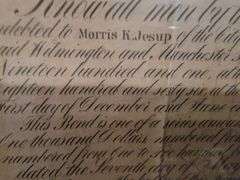 Know all men by
indebted to Morris K. Jesup of the
said Wilmington and Manchester
Nineteen hundred and one, or
Eighteen hundred and sixty six in the
first day of December and June
This Bond is one of a series
One thousand Dollars
numbered from one to
dated the Seventh day of